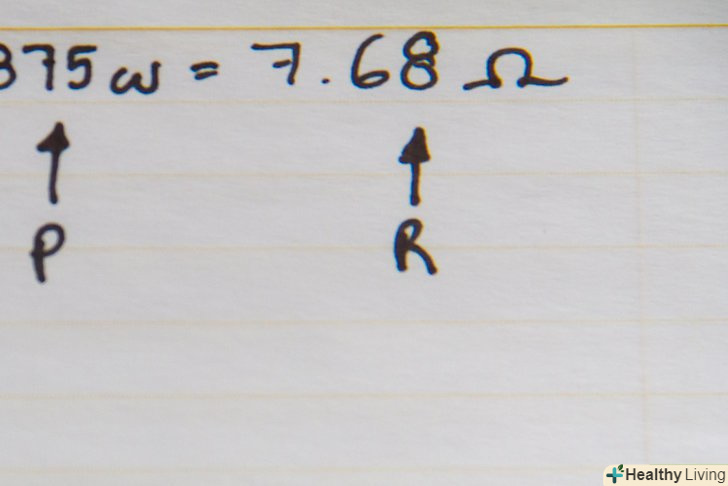 375 ω = 7.68 Ω
P
R
Healthy Living